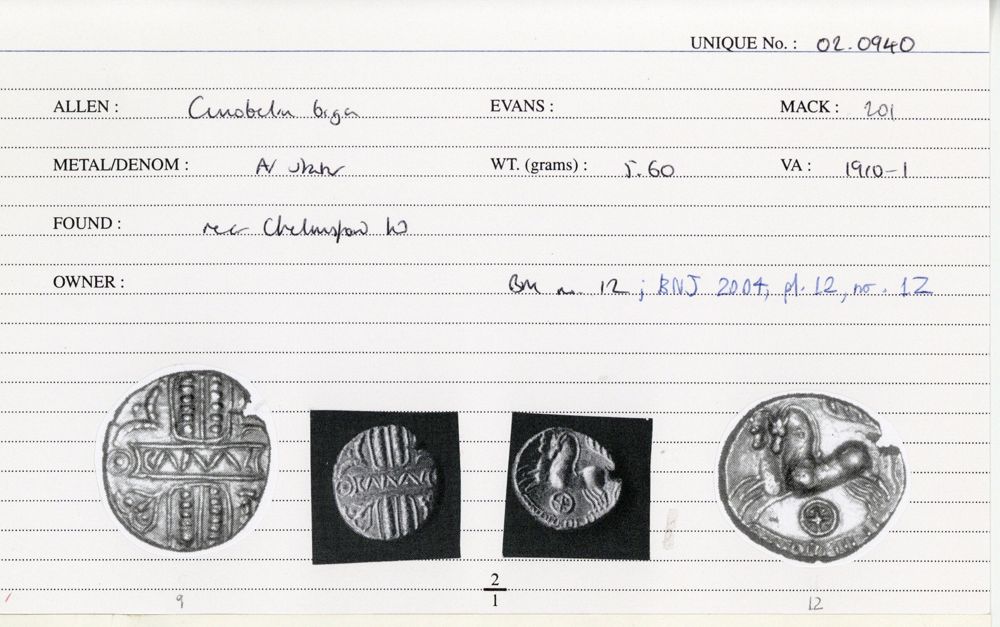 UNIQUE No. : 02.0940
ALLEN : Cunobelin biga EVANS : MACK : 201
METAL/DENOM : AV stater WT. (grams) : 5.60 VA : 1910-1
FOUND : near Chelmsford
OWNER : BM no. 12 ; BNJ 2004, pl. 12, no. 12
2
9 1 12